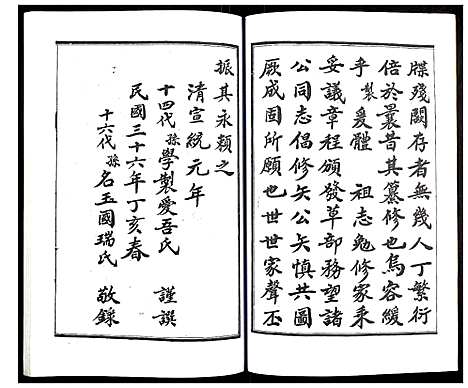 牒殘闕存者無幾人丁繁衍
倍於曩昔其纂修也烏容緩
乎製爰體 祖志勉修家乘
妥議章程頒發草部務望諸
公同志倡修矢公矢慎共圖
厥成固所願也世世家聲丕
振其永賴之
清宣統元年
十四代孫學製愛吾氏 謹譔
民國三十六年丁亥春
十六代孫名玉國瑞氏 敬錄